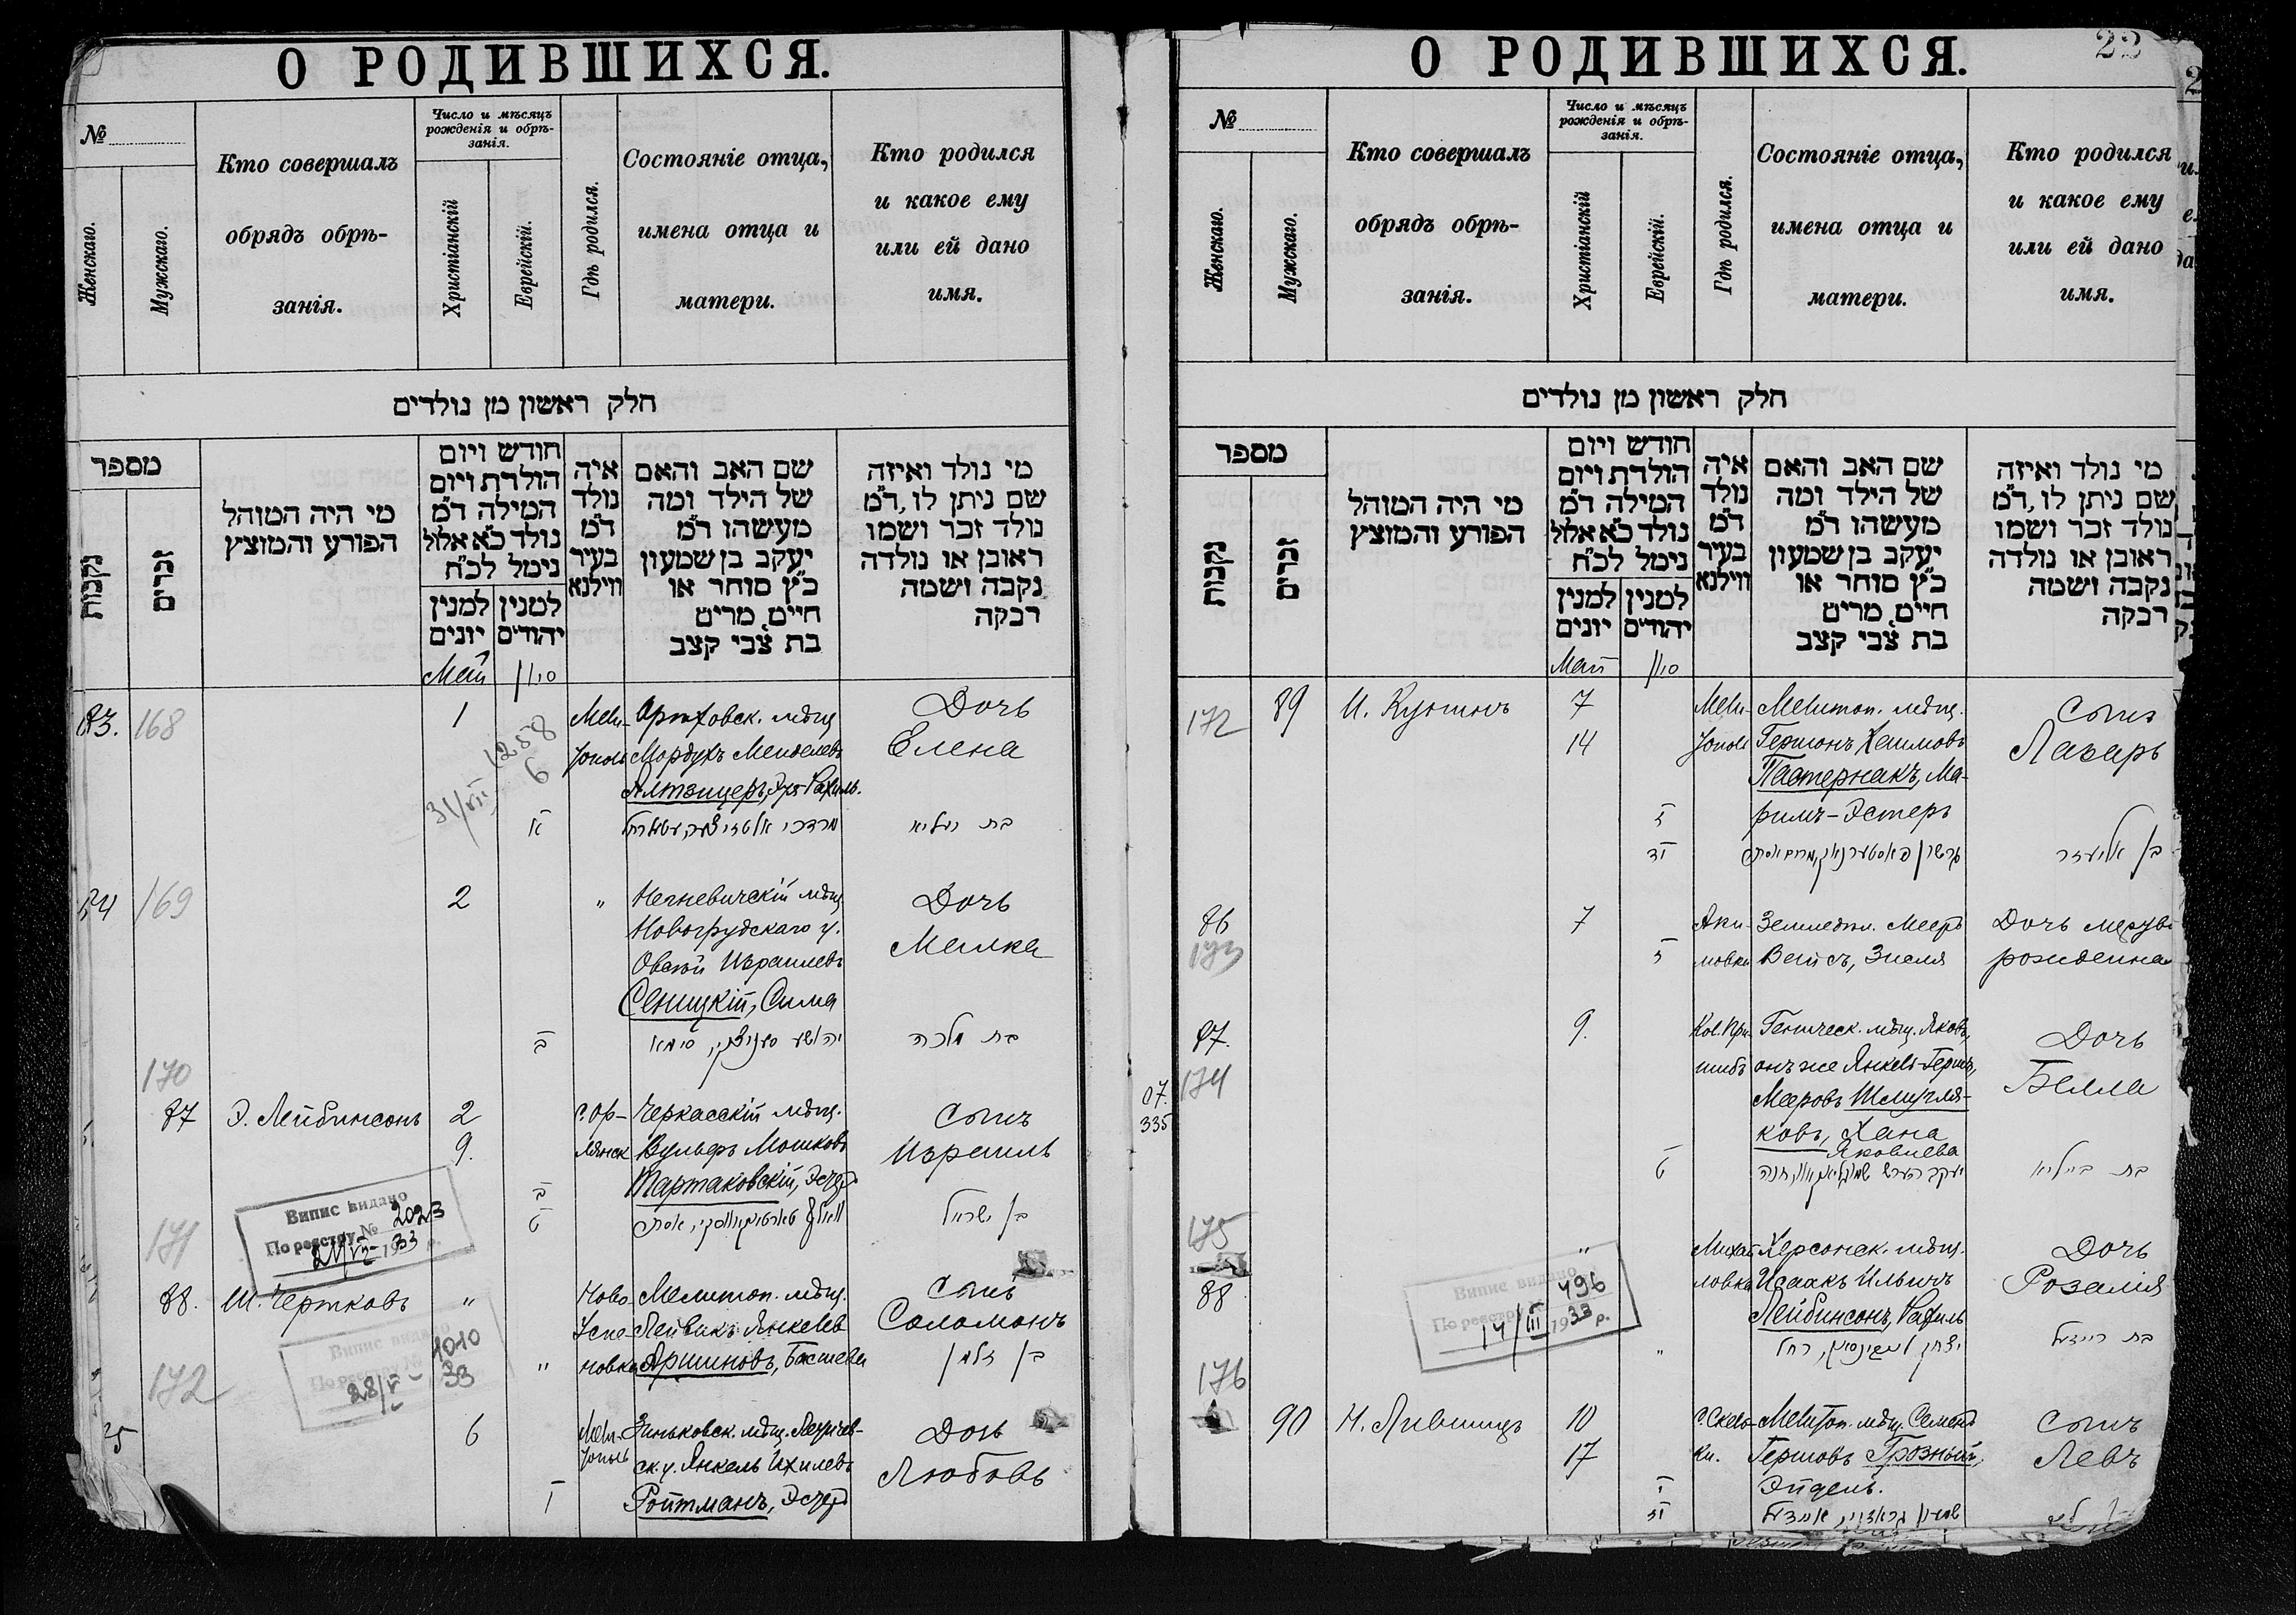 О РОДИВШИХСЯ.
№
Женскаго.
Мужскаго.
Кто совершалъ
обрядъ обрѣ-
занія.
Число и мѣсяцъ
рожденія и обрѣ-
занія.
Христіанскій
Еврейскій.
Гдѣ родился.
Состояніе отца,
имена отца и
матери.
Кто родился
и какое ему
или ей дано
имя.
חלק ראשון מן נולדים
מספר
נקבות
זכרים
מי היה המוהל
הפורע והמוצץ
חודש ויום
הולדת ויום
המילה ד"מ
נולד כ"א אלול
נימל לכ"ח
למנין
יונים
למנין
יהודים
איה
נולד
ד"מ
בעיר
ווילנא
שם האב והאם
של הילד ומה
מעשהו ד"מ
יעקב בן שמעון
כ"ץ סוחר או
חיים, מרים
בת צבי קצב
מי נולד ואיזה
שם ניתן לו, ד"מ
נולד זכר ושמו
ראובן או נולדה
נקבה ושמה
רבקה
Май
83. 168
1
Мели-
тополь
мѣщ.
Мордухъ Менделевъ
Альтзицеръ, Рахиль.
Дочь
Елена
1258
6
31/VII
א
בת
84 169
2
"
мѣщ.
Новогрудскаго у.
Овсей Израилевъ
Сеницкій, Сима
Дочь
Малка
ב
יהושע סעניצקי, סימא
בת מלכה
170
87 Э. Лейбинсонъ
2
9.
с. Ор-
лянск
Черкасскій мѣщ.
Вульфъ Мошковъ
Тартаковскій, Эсѳирь
Сынъ
Израиль
ב
ט
בן ישראל
Випис видано
По реєстру № 2023
21/VII-1933 р.
171
88. Ш. Чертковъ
"
"
Ново-
Успе-
новка
Мелитоп. мѣщ.
Лейвикъ Янкелев
Аршиновъ, Басшева
Сынъ
Соломонъ
בן זלמן
Випис видано
По реєстру № 1010
28/V-33
172
85
6
Мели-
тополь
Зиньковск. мѣщ. Летичев-
ск. у. Янкель Ихилевъ
Ройтманъ, Эсѳирь
Дочь
Любовь
ו
О РОДИВШИХСЯ.
22
№
Женскаго.
Мужскаго.
Кто совершалъ
обрядъ обрѣ-
занія.
Число и мѣсяцъ
рожденія и обрѣ-
занія.
Христіанскій
Еврейскій.
Гдѣ родился.
Состояніе отца,
имена отца и
матери.
Кто родился
и какое ему
или ей дано
имя.
חלק ראשון מן נולדים
מספר
נקבות
זכרים
מי היה המוהל
הפורע והמוצץ
חודש ויום
הולדת ויום
המילה ד"מ
נולד כ"א אלול
נימל לכ"ח
למנין
יונים
למנין
יהודים
איה
נולד
ד"מ
בעיר
ווילנא
שם האב והאם
של הילד ומה
מעשהו ד"מ
יעקב בן שמעון
כ"ץ סוחר או
חיים, מרים
בת צבי קצב
מי נולד ואיזה
שם ניתן לו, ד"מ
נולד זכר ושמו
ראובן או נולדה
נקבה ושמה
רבקה
Май
172
89
7
14
Мели-
тополь
Мелитоп. мѣщ.
Гершонъ Хаимовъ
Пастернакъ, Ма-
римъ-Эстеръ
Сынъ
Лазарь
ז
יד
גרשון פאסטערנאק, מרים אסתר
בן אליעזר
86
173
7
ז
Аки-
мовка
Земледѣл. Мееръ
Вайсъ, Знеля
Дочь мертво
рожденная
87.
174
07.
335
9.
Кол. При-
шибъ
Геническ. мѣщ. Яковъ,
онъ же Янкель-Гершъ,
Мееровъ Шмугля-
ковъ, Хана
Яковлева
Дочь
Бэлла
ט
בת ביילא
175
88
"
"
Михай-
ловка
Херсонск. мѣщ.
Исаакъ Ильичъ
Лейбинсонъ, Рахиль
Дочь
Розалія
יצחק לייבינסאן, רחל
בת רייזעל
Випис видано
По реєстру № 496
14/III 1933 р.
176
90
10
17
с. Скель-
ки.
Мелитоп. мѣщ. Семенъ
Гершовъ Грозный,
Эйдель.
Сынъ
Левъ
י
יז